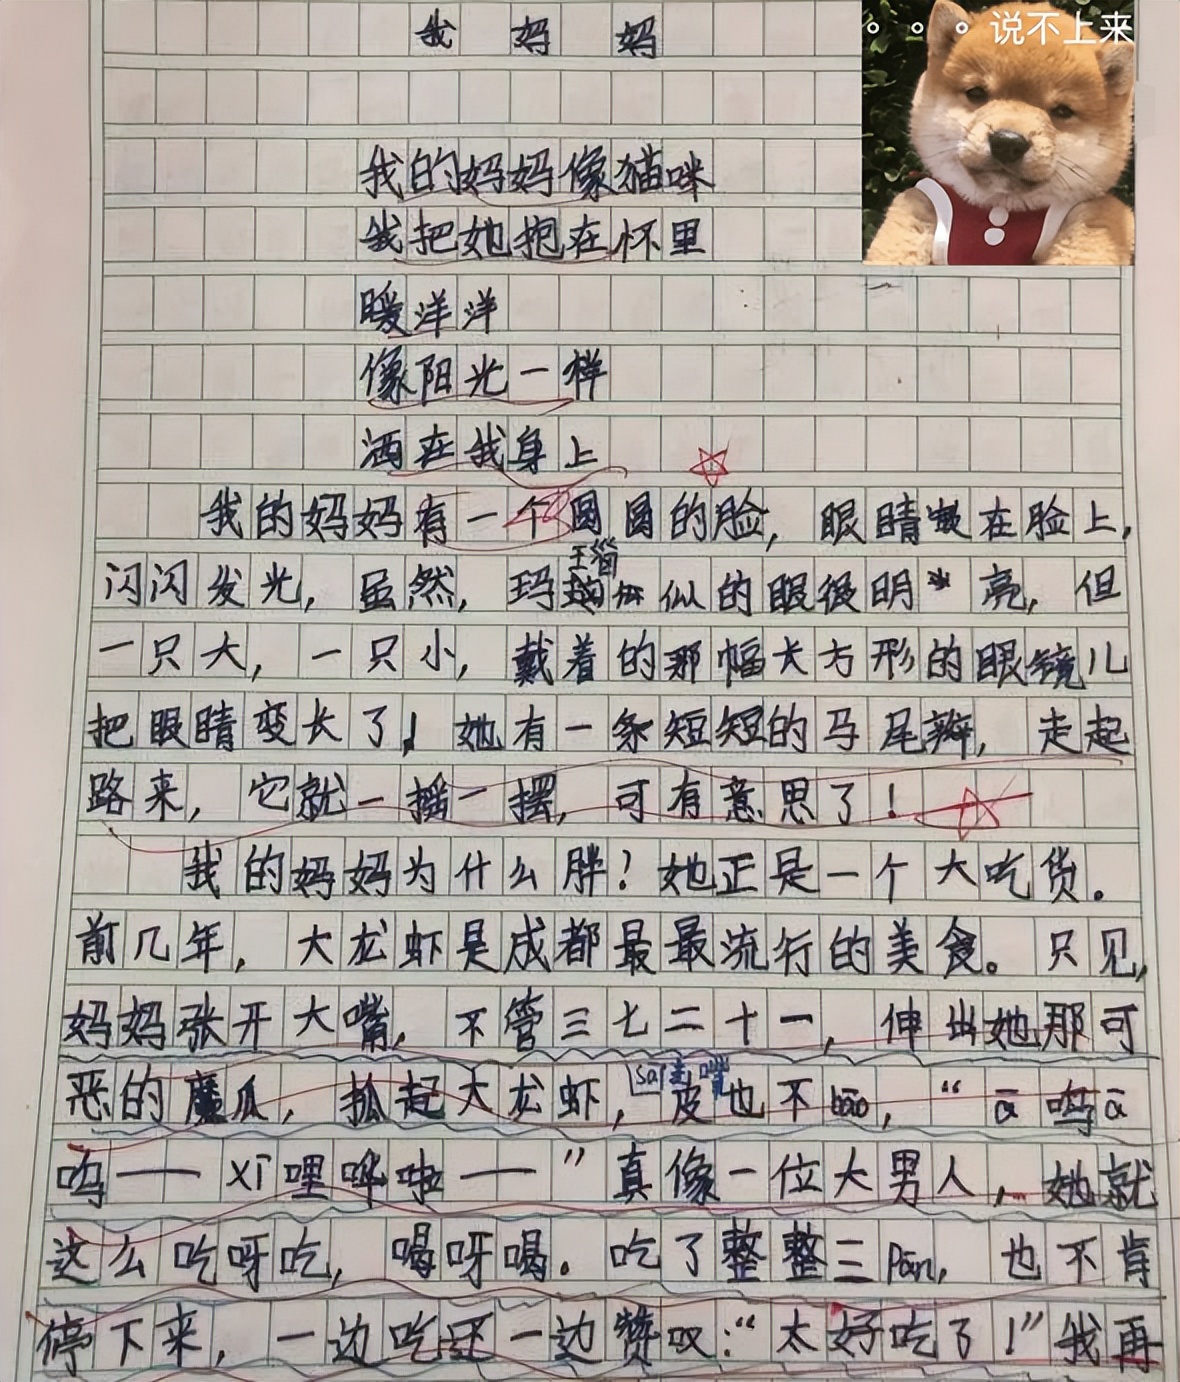 我妈妈
。。。说不上来
我的妈妈像猫咪
我把她抱在怀里
暖洋洋
像阳光一样
洒在我身上
我的妈妈有一个圆圆的脸，眼睛嵌在脸上，
闪闪发光，虽然，玛瑙似的眼很明亮，但
一只大，一只小，戴着的那幅大方形的眼镜儿
把眼睛变长了！她有一条短短的马尾辫，走起
路来，它就一摇一摆，可有意思了！
我的妈妈为什么胖？她正是一个大吃货。
前几年，大龙虾是成都最最流行的美食。只见，
妈妈张开大嘴，不管三七二十一，伸出她那可
恶的魔爪，抓起大龙虾，皮也不bāo，“ā呜ā
呜——xī哩哗啦——”真像一位大男人，她就
这么吃呀吃，喝呀喝。吃了整整三Pán，也不肯
停下来，一边吃还一边赞叹：“太好吃了！”我再